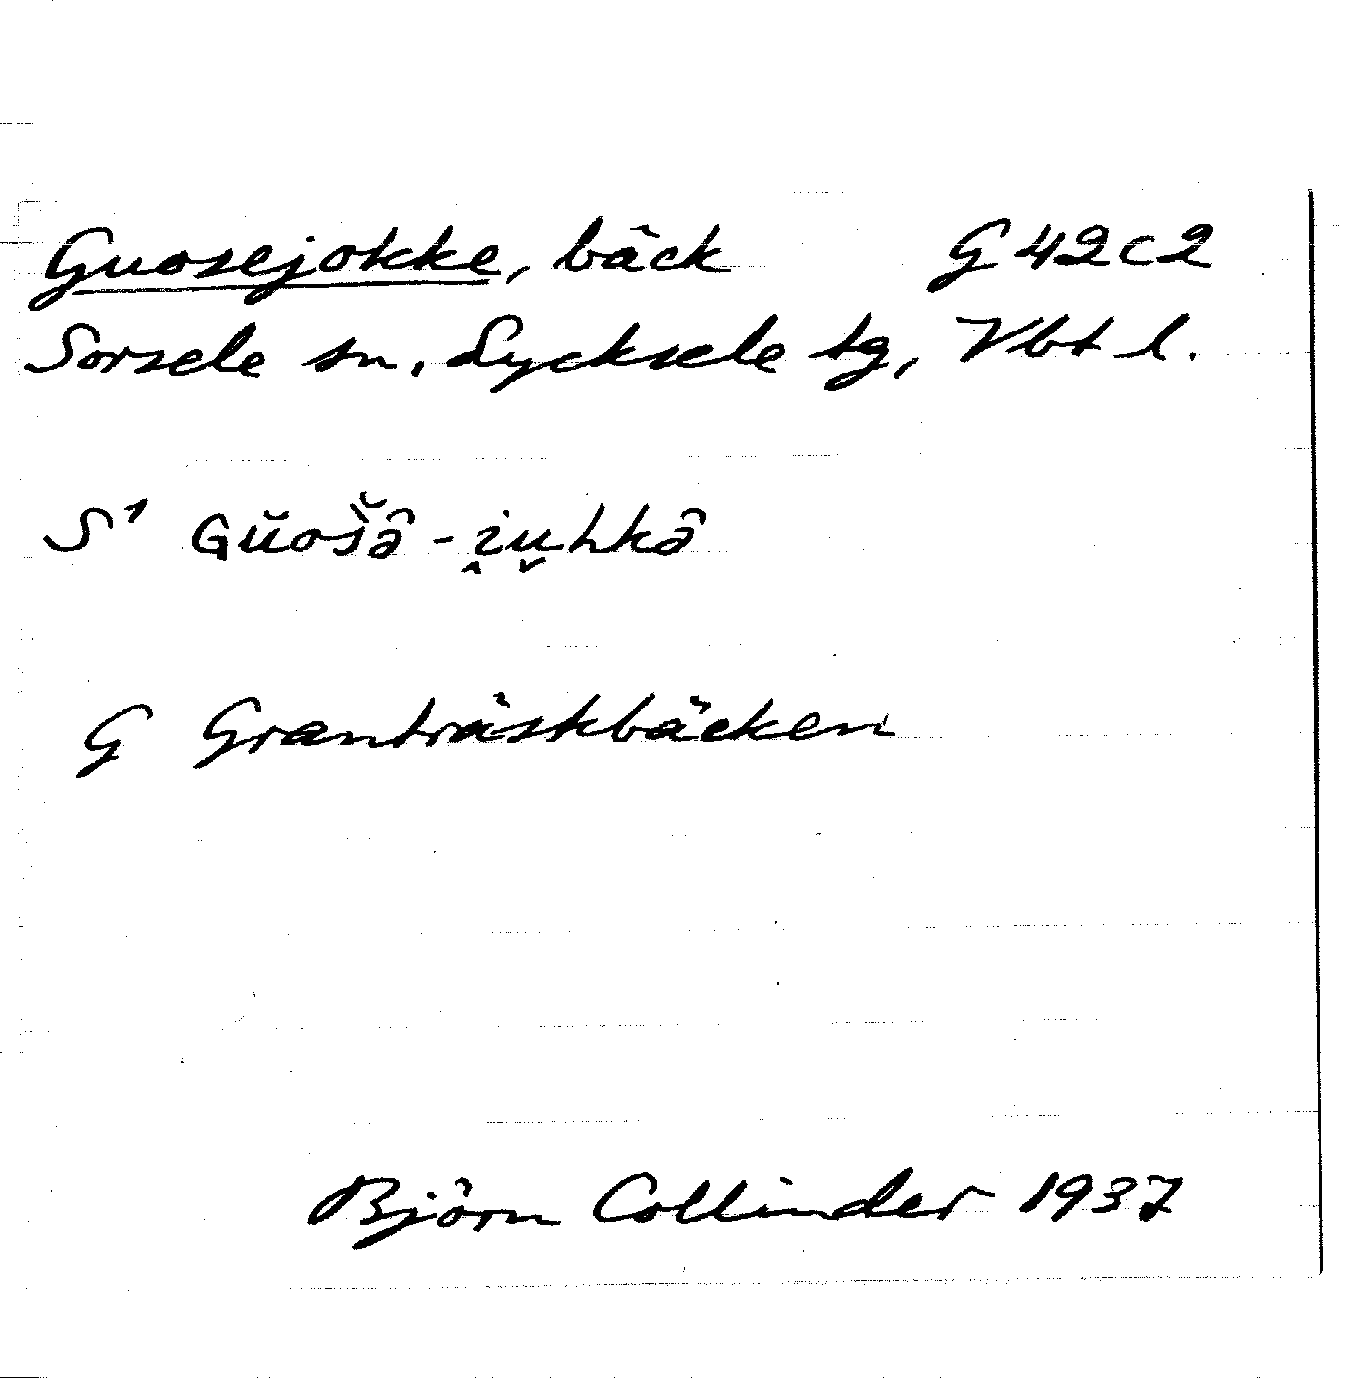 Guosejokke, bäck G 42 c 2
Sorsele sn, Lycksele tg, Vbt l.
S¹ Gŭošə̂ - i̭u̬hkə̂
G Granträskbäcken
Björn Collinder 1937